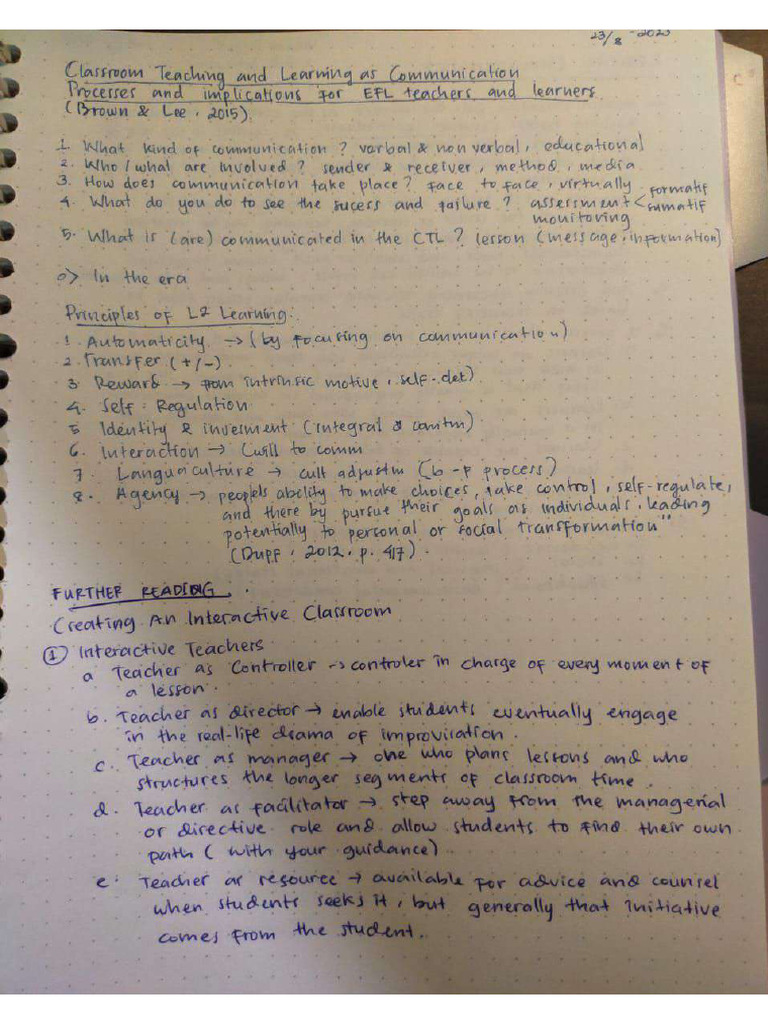 23/8 - 2023
Classroom Teaching and Learning as Communication
Processes and implications for EFL teachers and learners
(Brown & Lee, 2015).
1. What kind of communication? verbal & non verbal, educational
2. Who / what are involved? sender & receiver, method, media
3. How does communication take place? face to face, virtually
4. What do you do to see the sucess and failure? assessment < formatif
sumatif
monitoring
5. What is (are) communicated in the CTL? lesson (message, information)
o> In the era
Principles of L2 Learning.
1. Automaticity → (by focusing on communication)
2. Transfer (+/-)
3. Reward → from intrinsic motive, self-det)
4. Self-Regulation
5 Identity & invesment (integral &
6. Interaction → (will to comm
7. Languaculture → cult adjustm (b-f process)
8. Agency → people's ability to make choices, take control, self-regulate,
and there by pursue their goals as individuals, leading
potentially to personal or social transformation"
(Duff, 2012, p. 417).
FURTHER READING.
Creating An Interactive Classroom
① Interactive Teachers
a Teacher as Controller → controler in charge of every moment of
a lesson.
b. Teacher as director → enable students eventually engage
in the real-life drama of improvisation.
c. Teacher as manager → one who plans lessons and who
structures the longer segments of classroom time.
d. Teacher as facilitator → step away from the managerial
or directive role and allow students to find their own
path (with your guidance)
e. Teacher as resource → available for advice and counsel
when students seeks it, but generally that initiative
comes from the student.